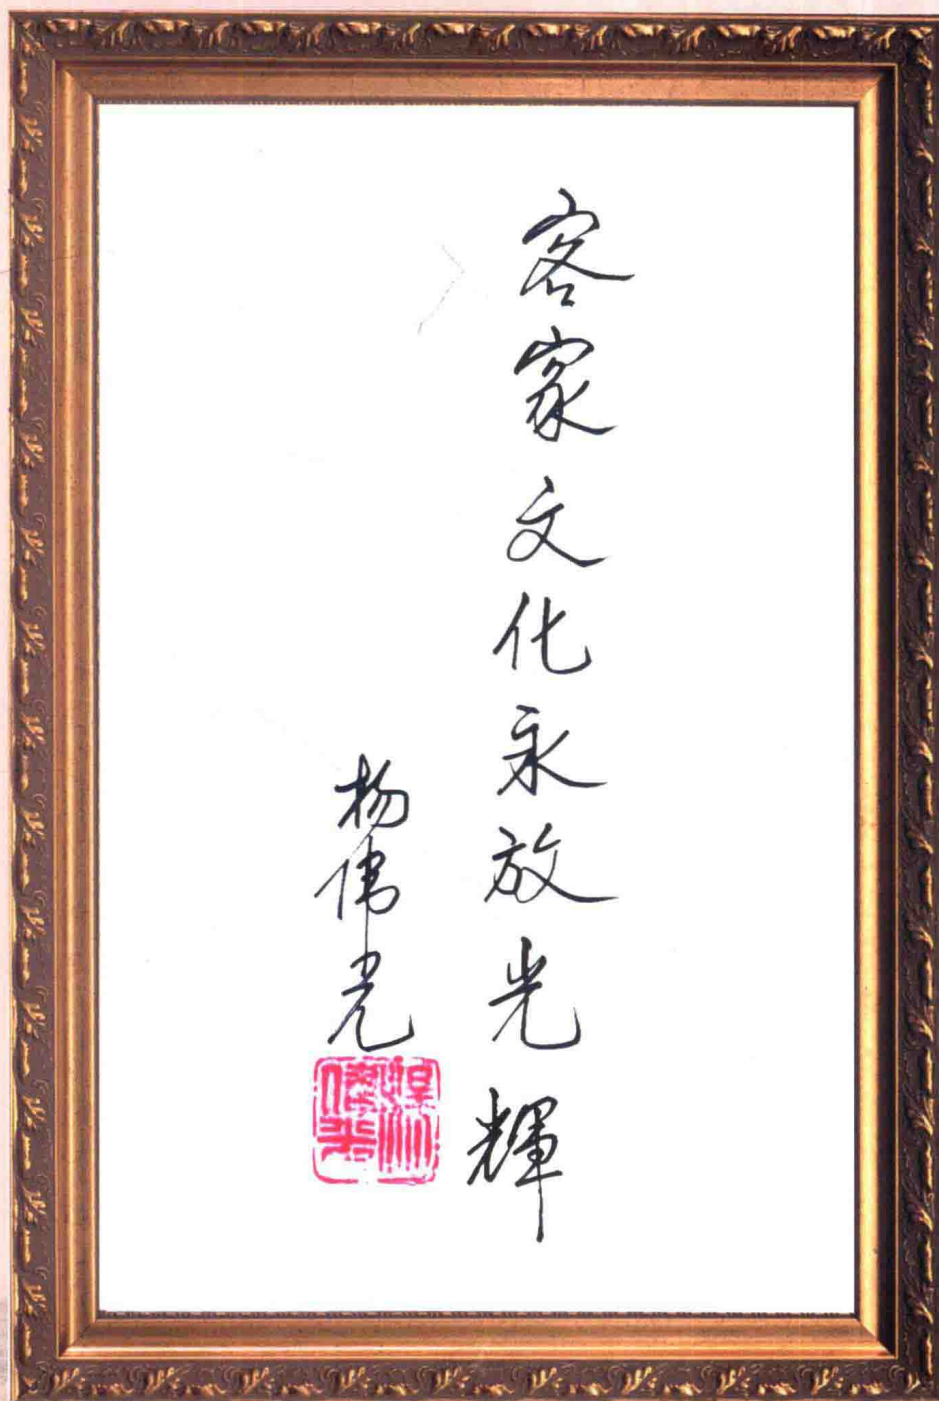 客家文化永放光輝
杨伟光